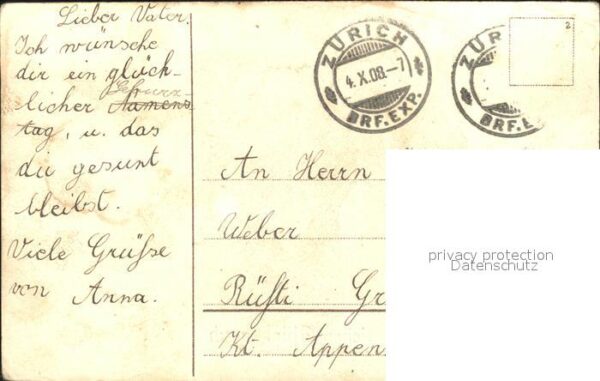 Lieber Vater.
Ich wünsche
dir ein glück-
licher Namens
tag, u. das
du gesunt
bleibst.
Viele Grüsse
von Anna.
ZÜRICH
4.X.08.-7
BRF.EXP.
ZÜR
BRF.E
2
An Herrn
Weber
Rüsti Gr
Kt. Appen
privacy protection
Datenschutz